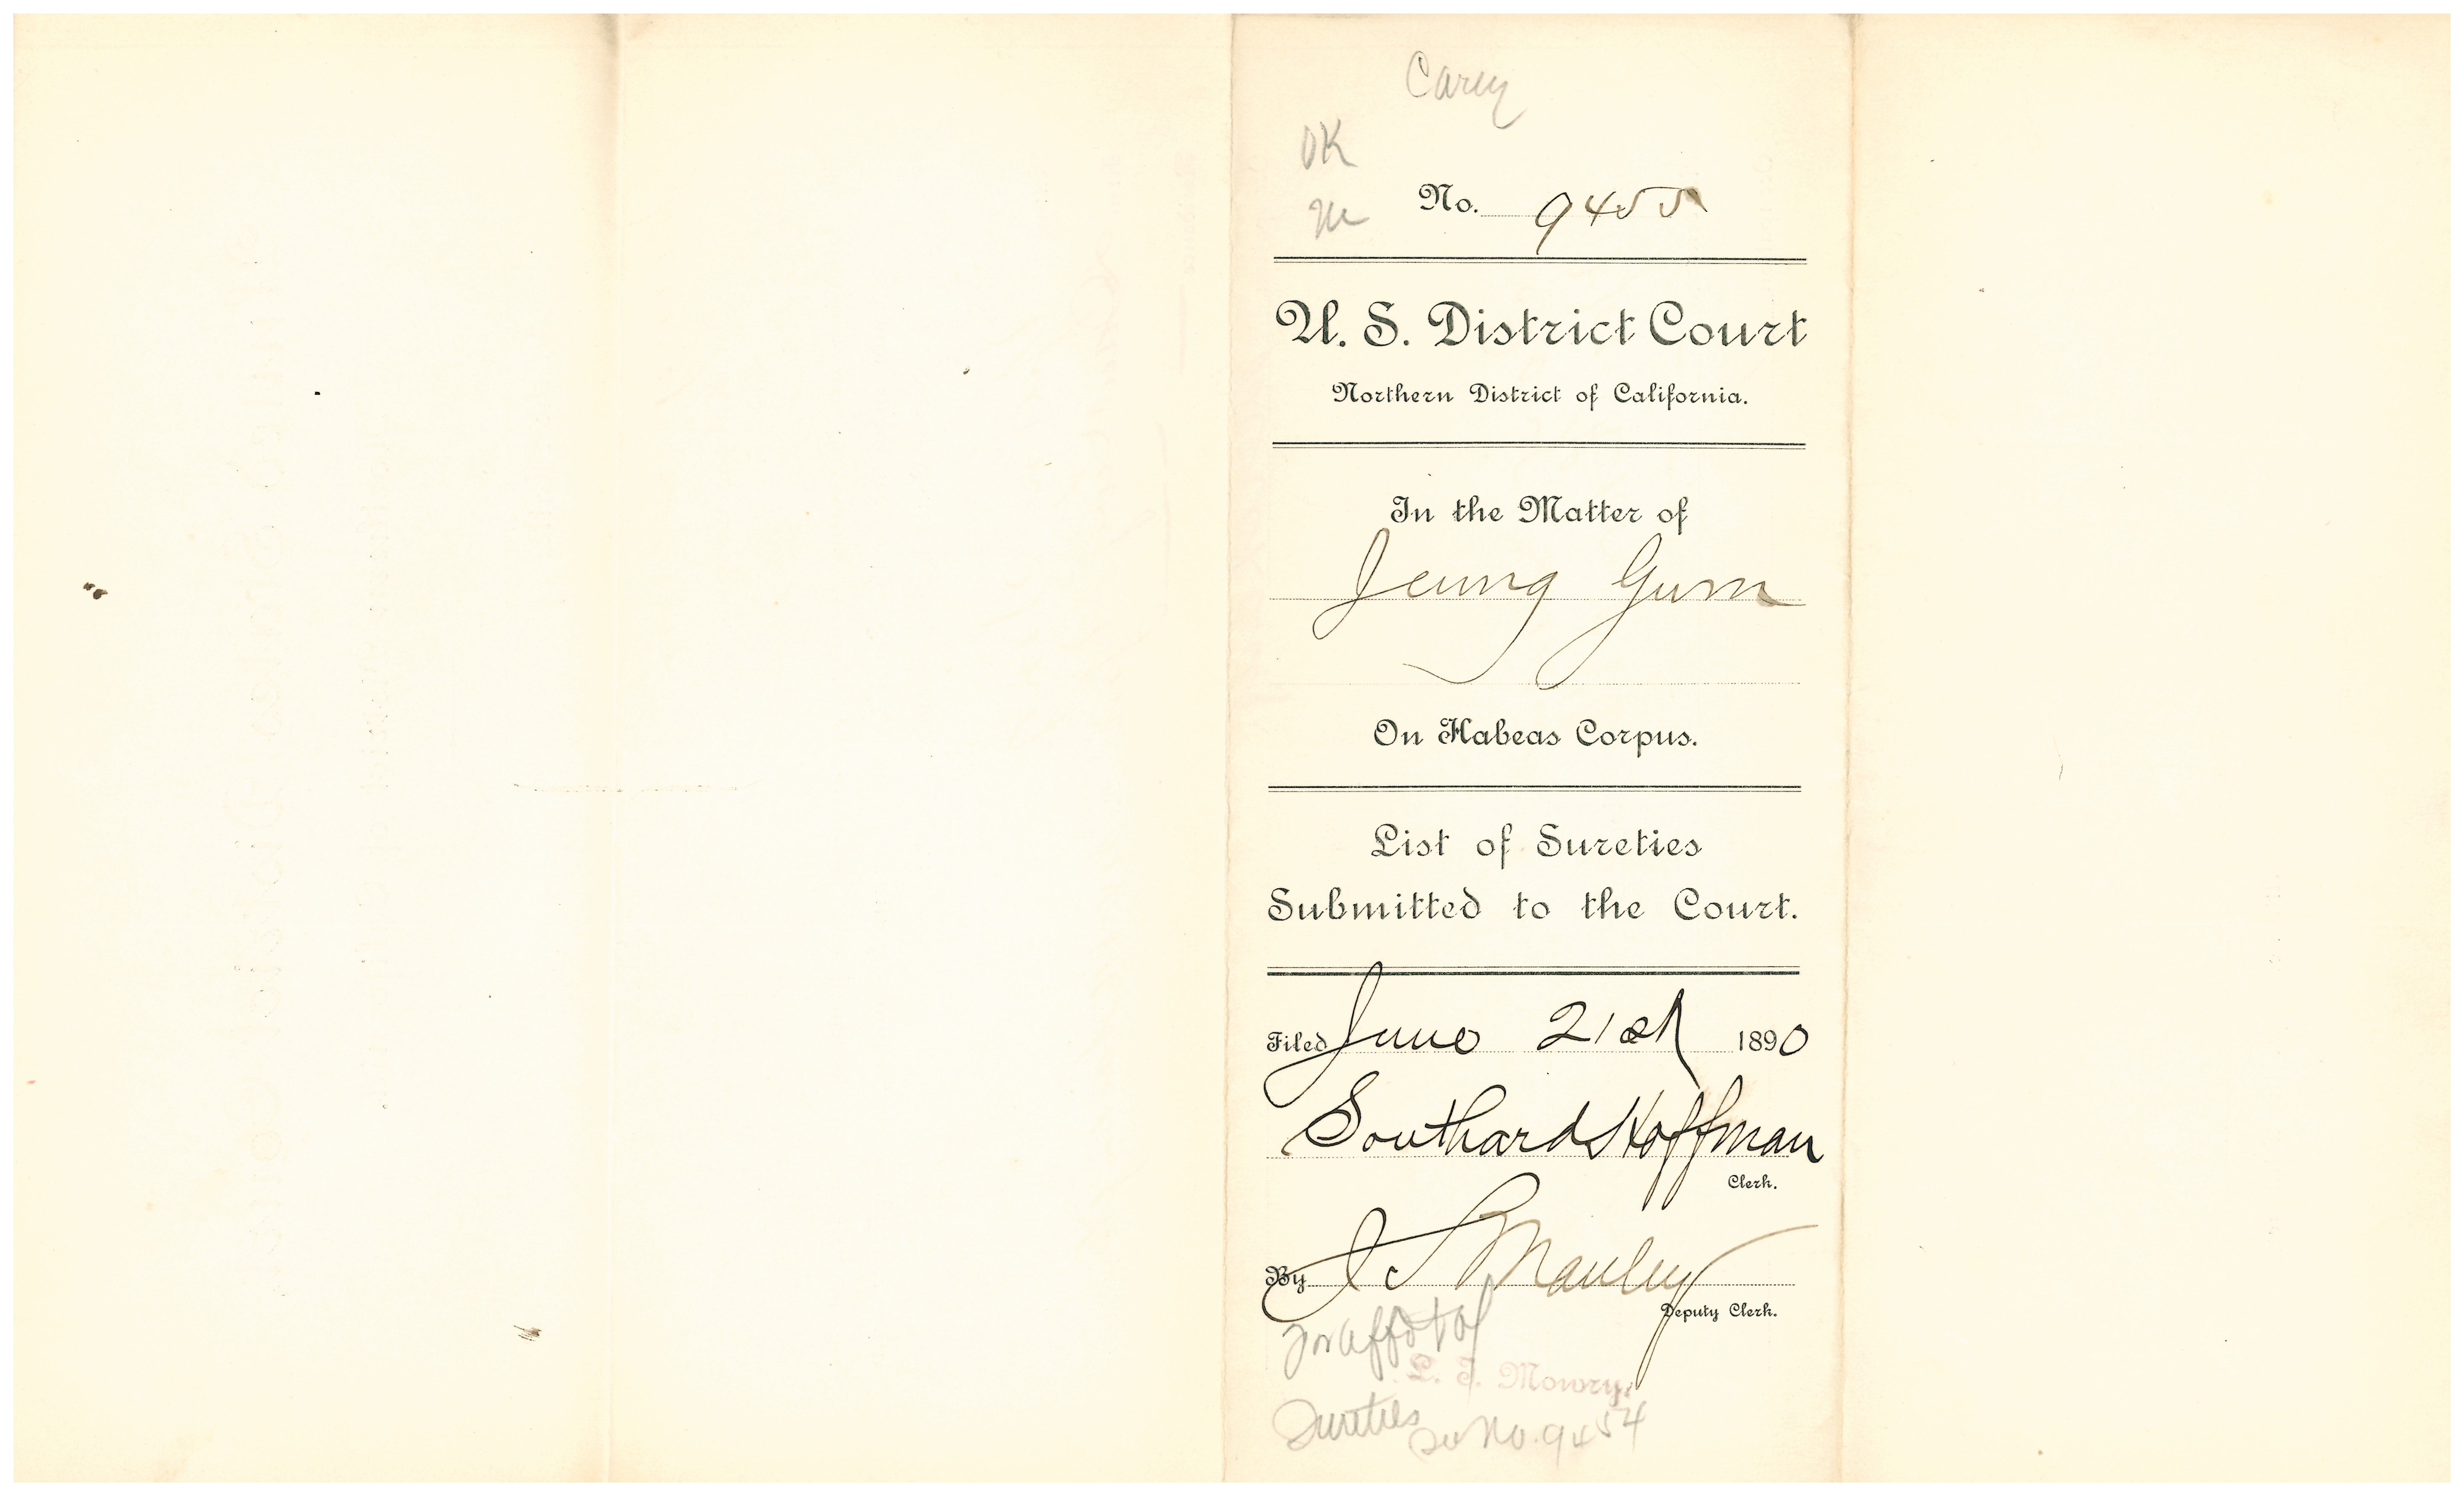 Carey
OK
No. 9455
U. S. District Court
Northern District of California.
In the Matter of
Jeung Gum
On Habeas Corpus.
List of Sureties
Submitted to the Court.
Filed June 21st 1890
Southard Hoffman
Clerk.
By J S Manley
Deputy Clerk.
For affdt of
L. T. Mowry.
Sureties
See No. 9454